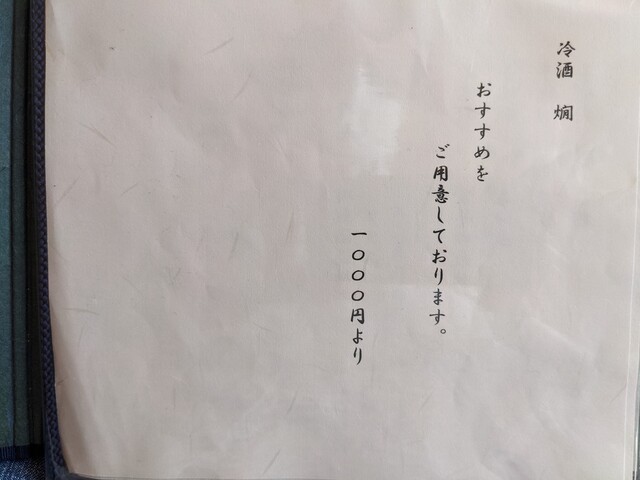 冷酒　燗
おすすめを
ご用意しております。
一〇〇〇円より